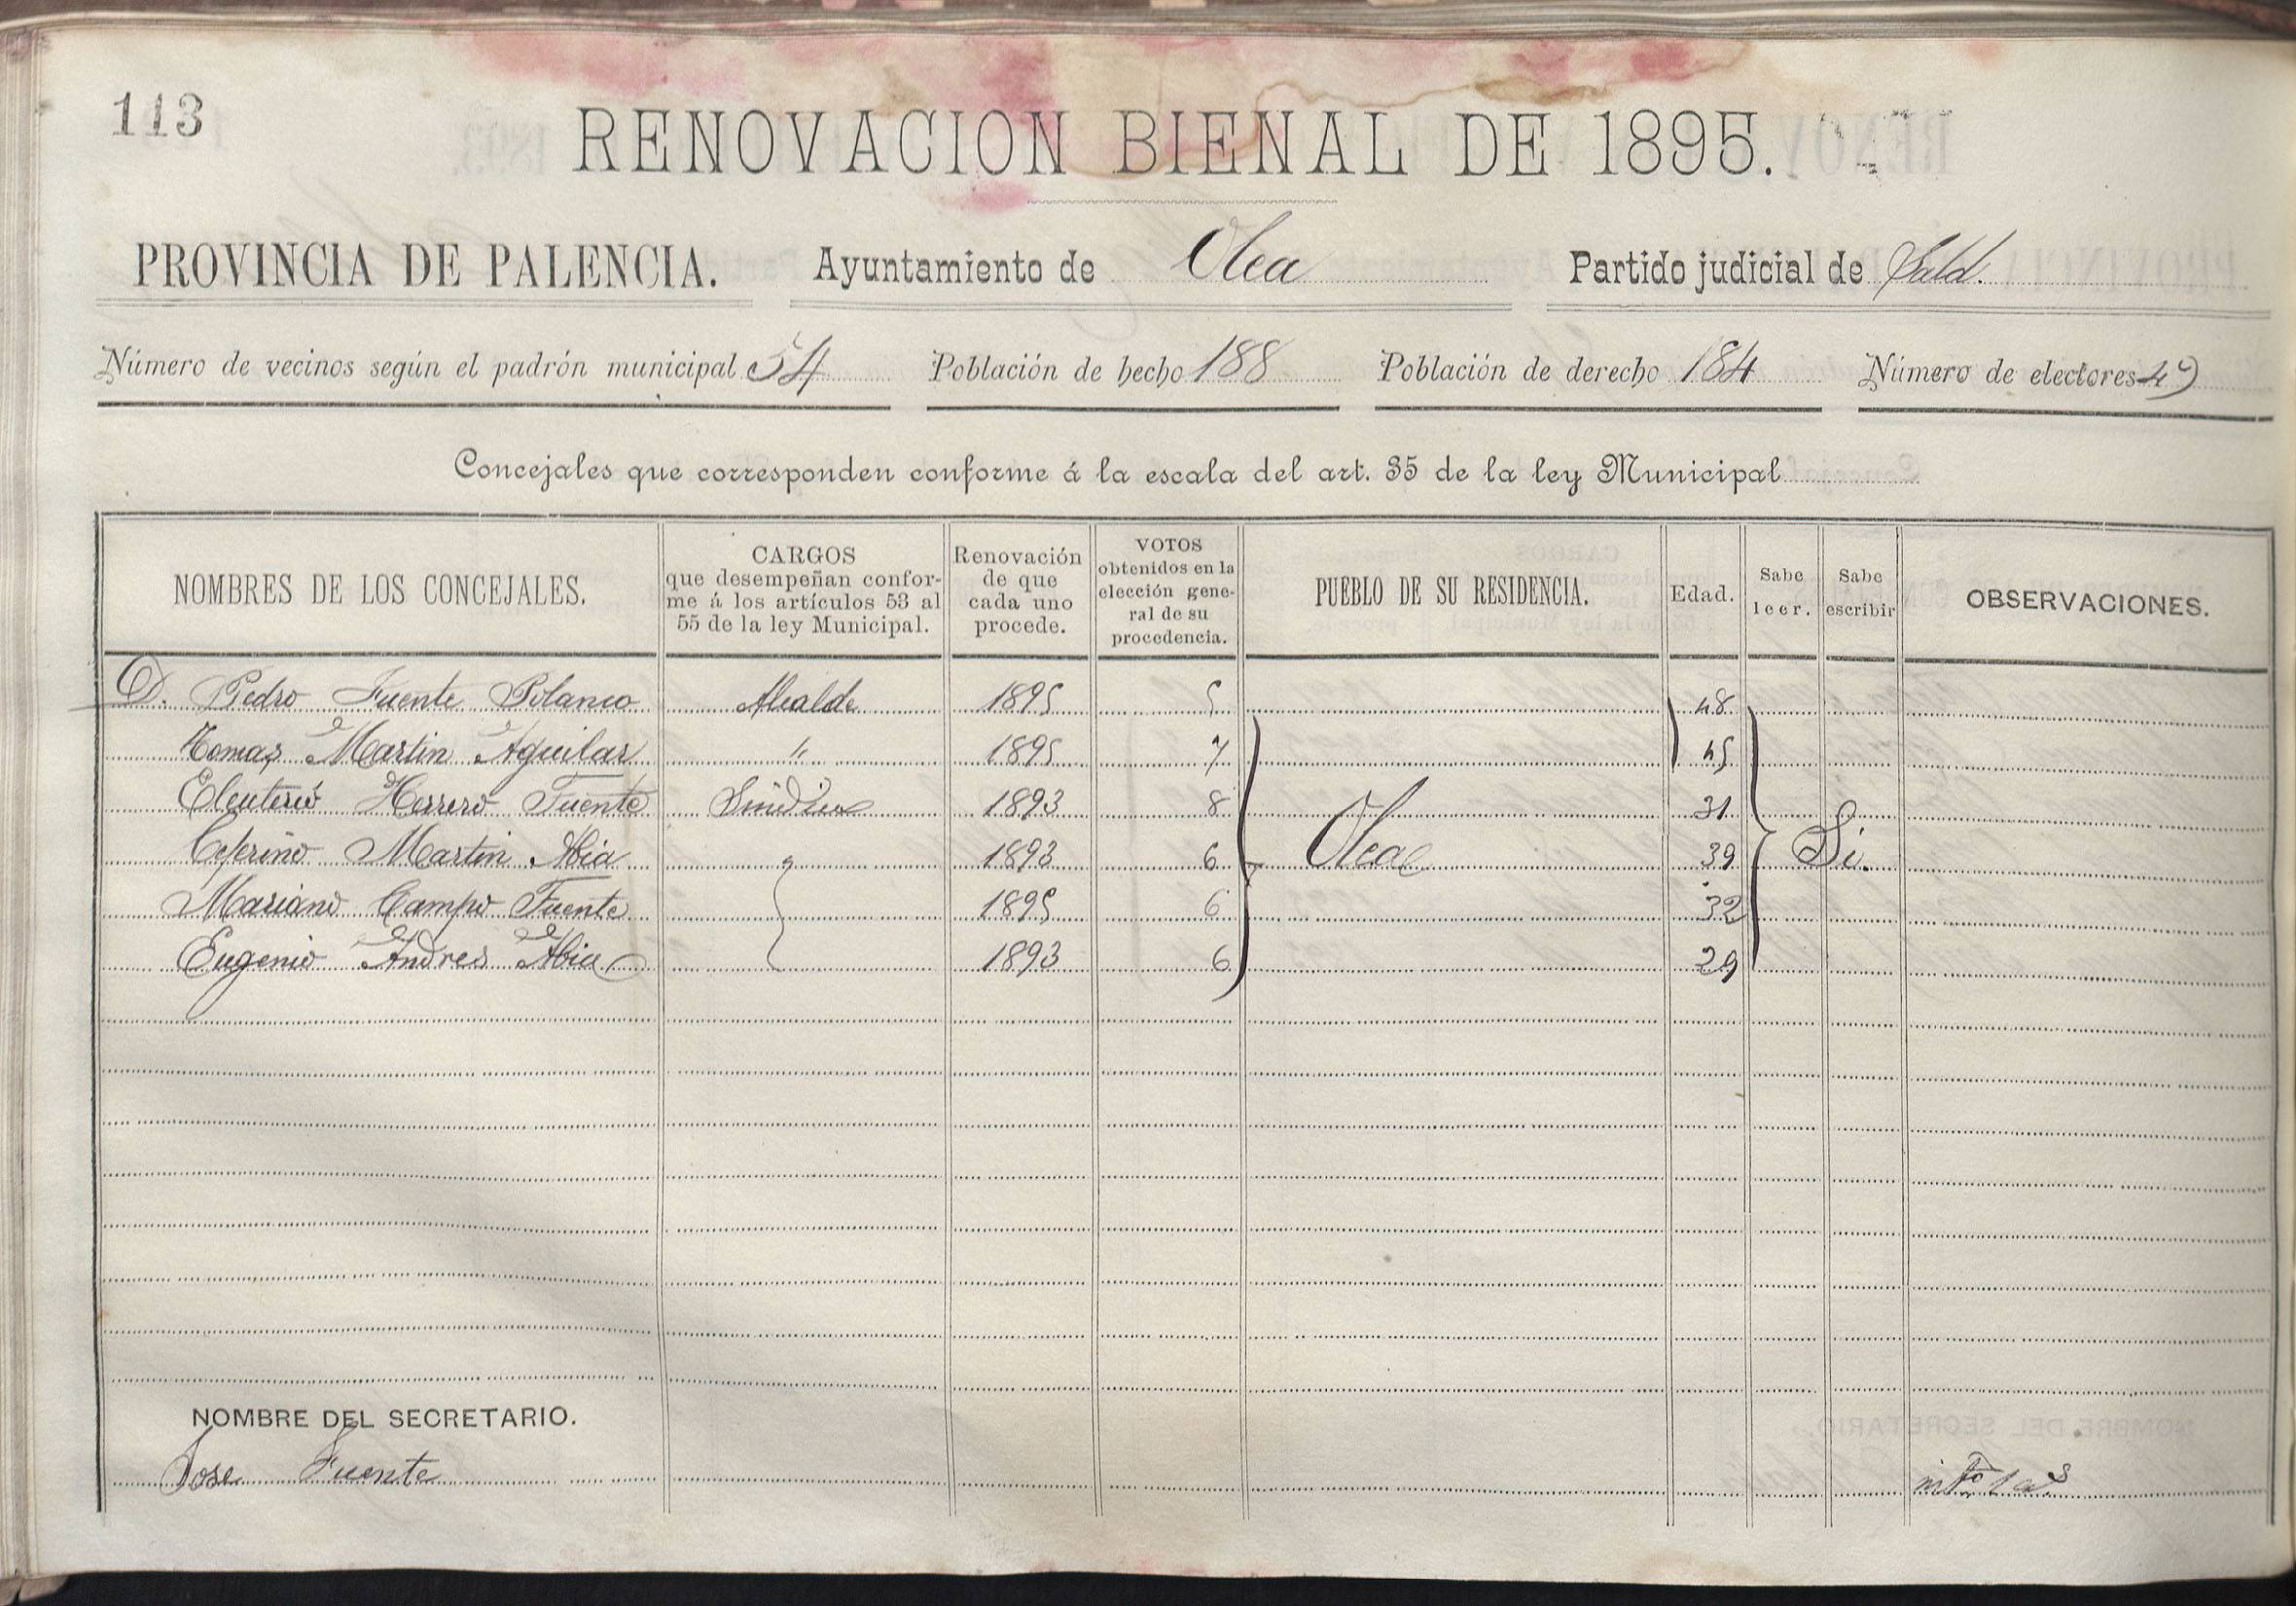 113
RENOVACION BIENAL DE 1895.
PROVINCIA DE PALENCIA. Ayuntamiento de Olea Partido judicial de Sald.
Número de vecinos según el padrón municipal 54 Población de hecho 188 Población de derecho 184 Número de electores 49
Concejales que corresponden conforme á la escala del art. 35 de la ley Municipal
NOMBRES DE LOS CONCEJALES. CARGOS que desempeñan conforme á los artículos 53 al 55 de la ley Municipal. Renovación de que cada uno procede. VOTOS obtenidos en la elección general de su procedencia. PUEBLO DE SU RESIDENCIA. Edad. Sabe leer. Sabe escribir OBSERVACIONES.
D. Pedro Fuente Polanco Alcalde 1895 5 48
Tomas Martin Aguilar " 1895 7 45
Eleuterio Herrero Fuente Sindico 1893 8 31
Ceferino Martin Abia 1893 6 Olea 39 Si.
Mariano Campo Fuente 1895 6 32
Eugenio Andres Abia 1893 6 29
NOMBRE DEL SECRETARIO.
Jose Fuente